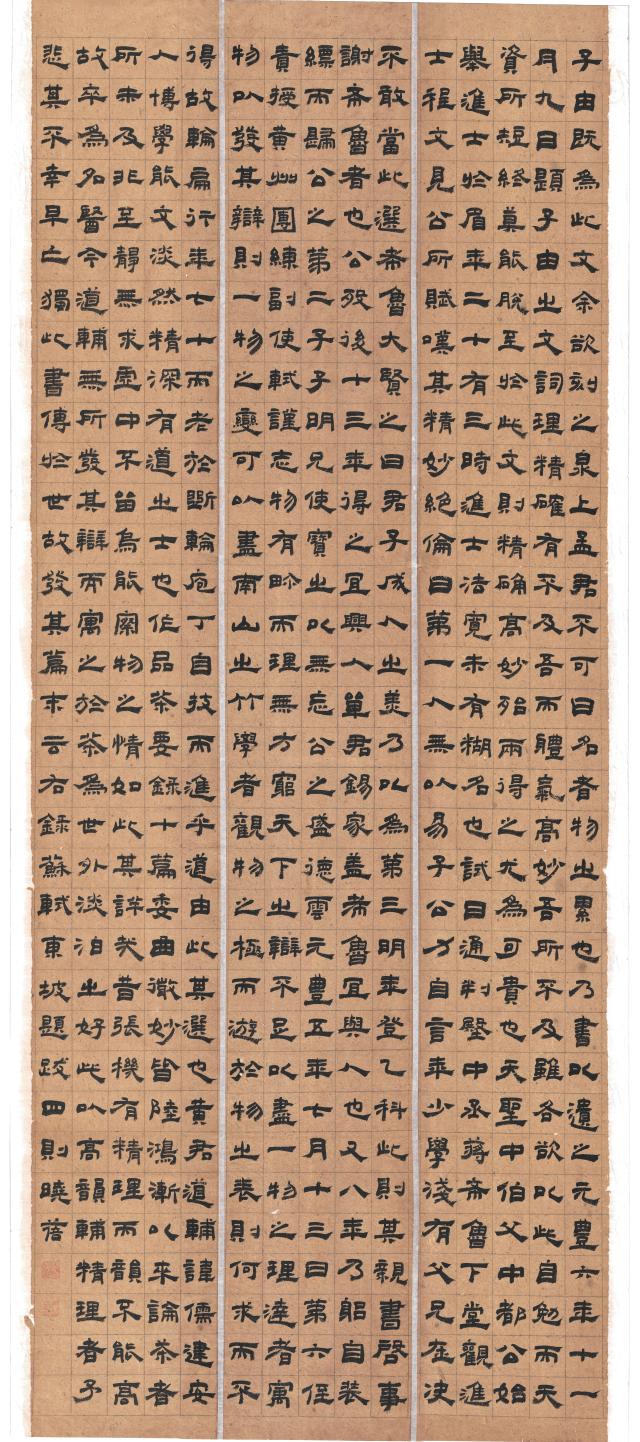 子由既為此文余欲刻之泉上孟君不可曰名者物之累也乃書以遺之元豊六年十一
月九日題子由之文詞理精確有不及吾而體氣高妙吾所不及雖各欲以此自勉而天
資所短終莫能脫至於此文則精确高妙殆兩得之尤為可貴也天聖中伯父中都公始
舉進士於眉年二十有三時進士法寬未有糊名也試日通判殿中丞蔣希魯下堂觀進
士程文見公所賦嘆其精妙絕倫曰第一人無以易子公力自言年少學淺有父兄在決
不敢當此選希魯大賢之曰君子成人之美乃以為第三明年登乙科此則其親書啓事
謝希魯者也公歿後十三年得之宜興人單君錫家蓋希魯宜興人也又八年乃躬自裝
縹而歸公之第二子子明兄使寶之以無忘公之盛德雲元豊五年七月十三日第六侄
責授黄州團練副使軾謹志物有畛而理無方窮天下之辯不足以盡一物之理達者寓
物以發其辯則一物之變可以盡南山之竹學者觀物之極而遊於物之表則何求而不
得故輪扁行年七十而老於斲輪庖丁自技而進乎道由此其選也黄君道輔諱儒建安
人博學能文淡然精深有道之士也作品茶要錄十篇委曲微妙皆陸鴻漸以來論茶者
所未及非至靜無求虛中不留烏能察物之情如此其詳哉昔張機有精理而韻不能高
故卒為名醫今道輔無所發其辯而寓之於茶為世外淡泊之好此以高韻輔精理者予
悲其不幸早亡獨此書傳於世故發其篇末云右錄蘇軾東坡題跋四則曉蓓